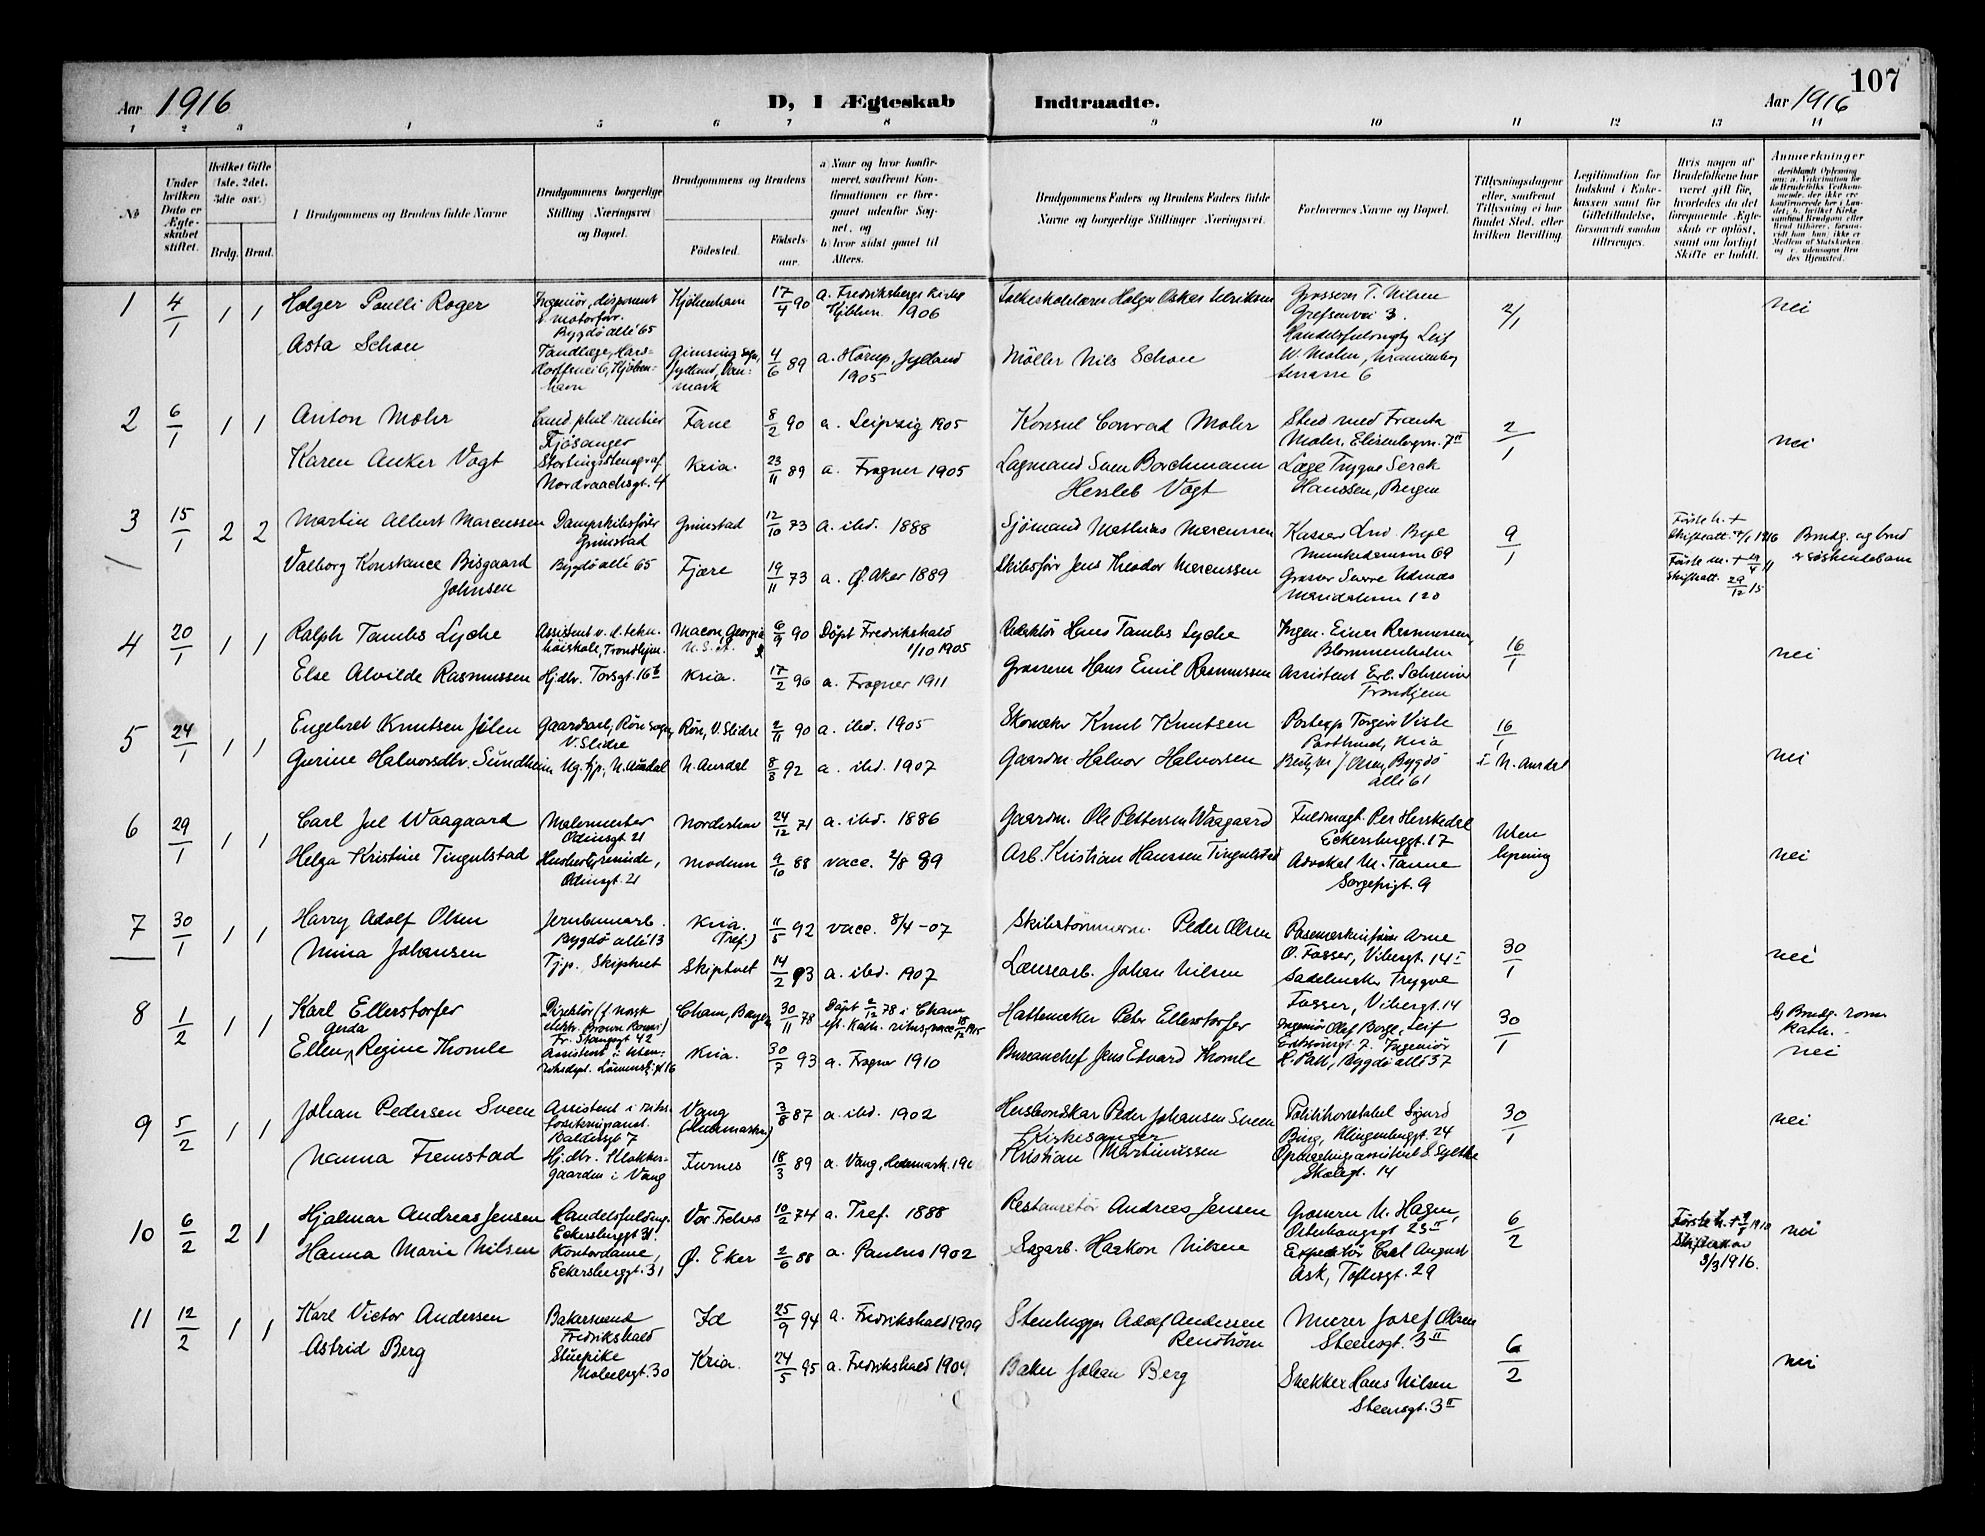 107
Aar 1916
D, I Ægteskab
Indtraadte.
Aar 1916
1 2 3 4 5 6 7 8 9 10 11 12 13 14
No
Under hvilken Dato er Ægteskabet stiftet.
Hvilket Gifte (1ste, 2det, 3die osv.)
Brdg. Brud.
Brudgommens og Brudens fulde Navne
Brudgommens borgerlige Stilling (Næringsvei) og Bopæl.
Brudgommens og Brudens
Fødested.
Fødselsaar.
a) Naar og hvor konfirmeret, saafremt Konfirmationen er foregaaet udenfor Sognet, og
b) hvor sidst gaaet til Alters.
Brudgommens Faders og Brudens Faders fulde Navne og borgerlige Stillinger (Næringsvei.
Forlovernes Navne og Bopæl.
Tillysningsdagene eller, saafremt Tillysning ei har fundet Sted, efter hvilken Bevilling.
Legitimation for Indskud i Enkekassen samt for Giftetilladelse, forsaavidt saadan tiltrænges.
Hvis nogen af Brudefolkene har været gift før, hvorledes da det foregaaende Ægteskab er opløst, samt om lovligt Skifte er holdt.
Anmerkninger
1 4/1 1 1 Holger Poulli Roger
Ingeniør, disponent v. motorforr. Bygdø allé 65
Kjøbenhavn 17/4 90 a. Fredriksbergs Kirke Kjbhvn. 1906
Folkeskolelærer Holger Oskar
Grosserer T. Nilsen Grefsenvei 3.
2/1 nei
Asta Schou
Tandlæge, Kjøbenhavn
Gimsing Sogn, Jylland, Danmark 4/6 89 a. Hörup, Jylland 1905
Möller Nils Schou
Leif W. Mohn, terrasse 6
2 6/1 1 1 Anton Mohr
Cand. phil. rentier Fjösanger
Fane 8/2 90 a. Leipzig 1905
Konsul Conrad Mohr
Stud. med Frantz Mohr, Elisenbergvn. 7 II
2/1 nei
Karen Anker Vogt
Stortingsstenograf Nordraachsgt. 4
Kria. 23/11 89 a. Frogner 1905
Lagmand Sven Borchmann Hersleb Vogt
Læge Trygve Serck Hanssen, Bergen
3 15/1 2 2 Martin Albert Marcussen
Dampskibsfører Grimstad
Grimstad 12/10 73 a. ibd. 1888
Sjömand Mathias Marcussen
Kasser Bye Munkedamsvn 69
9/1
Brudg. og brud er söskendebarn
Valborg Konstance Bisgaard Johnsen
Bygdø allé 65
Fjære 19/11 73 a. Ø. Aker 1889
Skibsförer Jens Theodor Marcussen
Maridalsvn 120
4 20/1 1 1 Ralph Tambs Lyche
Assistent v. d. tekn. höiskole, Trondhjem.
Macon, Georgia U.S.A. 6/9 90 Döpt Fredrikshald 1/10 1905
Redaktör Hans Tambs Lyche
Ingen. Einar Rasmussen, Blommenholm
16/1 nei
Else Alvilde Rasmussen
Hjdtv. Torsgt. 16 b
Kria. 17/2 96 a. Frogner 1911
Grosserer Hans Emil Rasmussen
Assistent Erl. Schreiner Trondhjem
5 24/1 1 1 Engebret Knutsen Jølen
Gaardsarb, Røn sogn, V. Slidre
Røn, V. Slidre 2/11 90 a. ibd. 1905
Skomaker Knut Knutsen
Postexp Torgeir Visle Posthuset, Kria
16/1 nei
Gurine Halvorsdtr. Sundheim
Ug. tjp., N. Aurdal
N. Aurdal 8/3 92 a. ibd. 1907
Gaardm. Halvor Halvorsen
J Olsen, Bygdö allé 61
i N. Aurdal
6 29/1 1 1 Carl Jul Waagaard
Malermester Odinsgt 21
Norderhov 24/12 71 a. ibd. 1886
Gaardm. Ole Pettersen Waagaard
Fuldmægt. Per Herredal Eckersbergsgt. 17
Uten lysning
nei
Helga Kristine Tingulstad
Husbestyrerinde, Odinsgt. 21
Modum 9/10 88 vacc. 2/8 89
Arb. Kristian Hanssen Tingulstad
Advokat M. Tanne Sorgefrigt. 9
7 30/1 1 1 Harry Adolf Olsen
Jernbanearb. Bygdö allé 13
Kria. (Tref.) 11/5 92 vacc. 8/4 -07
Skibstömmerm. Peder Olsen
Arne O. Fosser, Vibesgt. 14 I
30/1 nei
Mina Johansen
Tjp. Skiptvet
Skiptvet 14/2 93 a. ibd. 1907
Lænsearb. Johan Nilsen
Sadelmaker Trygve Fosser, Vibesgt. 14
8 1/2 1 1 Karl Ellerstorfer
Direktör (f. norsk elektr. Brown Boveri) Fr. Stangsgt 42
Cham, Bayern 30/11 78 Döpt 2/12 78 i Cham eft. Kath. ritus, vacc
Hattemaker Peter Ellerstorfer
Ingeniör Olaf Borge, Leif Erikssöngt. 7.
30/1
b) Brudg. rom. kath.
nei
Ellen Gerda Regine Thomle
Assistent i Utenriksdept.
Kria. 30/7 93 a. Frogner 1910
Bureauchef Jens Edvard Thomle
Ingeniör K. Bygdö allé 37
9 5/2 1 1 Johan Pedersen Sveen
Assistent i riksforsikringsanst. Baldersgt 7
Vang (Hedemarken) 3/8 87 a. ibd. 1902
Husbondskar Peder Johansen Sveen
Politikonstabel Sigurd Berg, Klingenberggt. 24
30/1 nei
Nanna Fremstad
Hjdtr. Klokkergaarden i Vang
Furnes 18/3 89 a. Vang, Hedemark.
Kirkesanger Kristian Martinussen
Opmaalingsassistent Skolegt. 14
10 6/2 2 1 Hjalmar Andreas Jensen
Handelsfuldmg. Eckersberggt 31.
Vor Frelsers 10/2 74 a. Tref. 1888
Restauratör Andreas Jensen
Grosserer N. Hagen, Osterhausgt 23 II
6/2
3/3 1916.
nei
Hanna Marie Nilsen
Kontordame, Eckersberggt. 31
Ø. Eker 2/6 88 a. Paulus 1902
Sagarb. Haakon Nilsen
Expeditör Carl August Ask, Toftesgt. 29
11 12/2 1 1 Karl Victor Andersen
Bakersvend Fredrikshald
Id 25/9 94 a. Fredrikshald 1909
Stenhugger Adolf Andersen Renström
Murer Josef Olsen Steensgt. 3 II
6/2 nei
Astrid Berg
Stuepike Nobelsgt. 30
Kria. 24/5 95 a. Fredrikshald 1909
Baker Johan Berg
Snekker Hans Nilsen Steensgt. 3 II